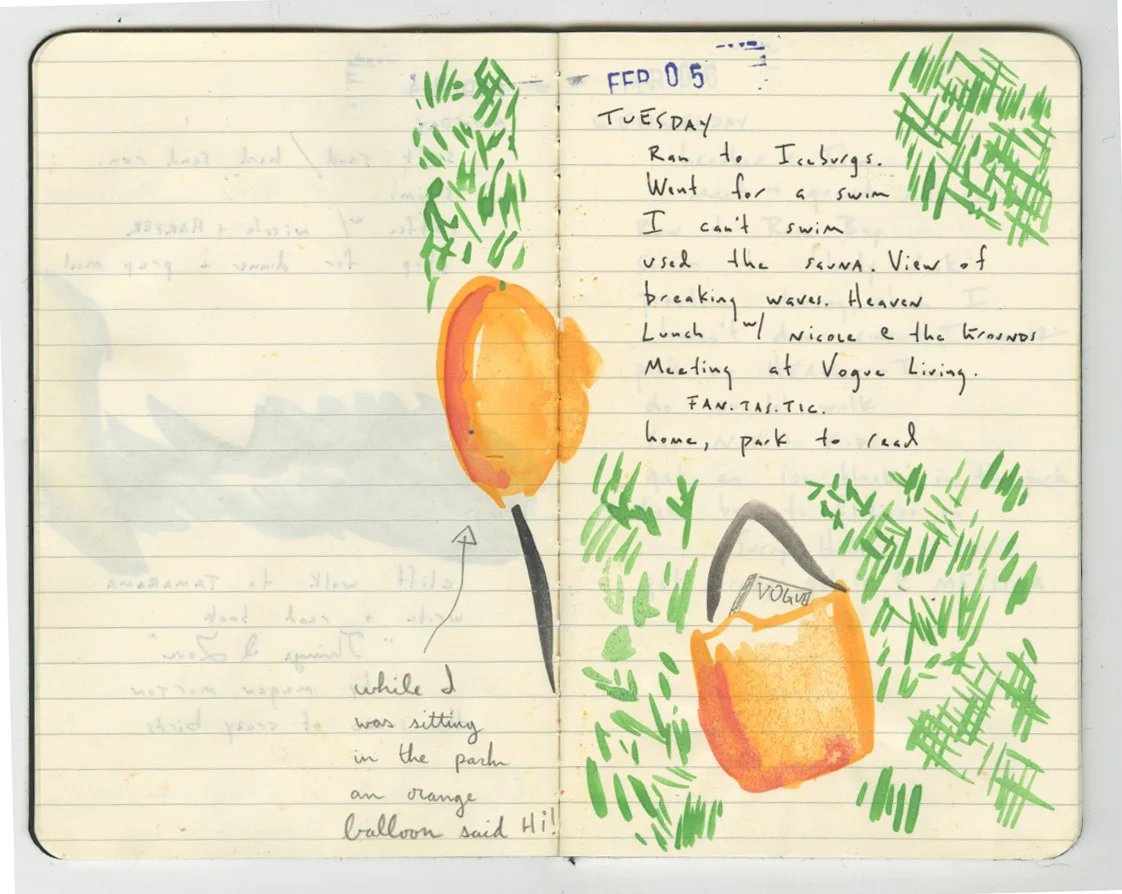 while I
was sitting
in the park
an orange
balloon said Hi!
FEB 05
TUESDAY
Ran to Iceburgs.
Went for a swim
I can't swim
used the SAUNA. View of
breaking waves. Heaven
Lunch w/ NICOLE @ the GROUNDS
Meeting at Vogue Living.
FAN.TAS.TIC.
home, park to read
VOGUE